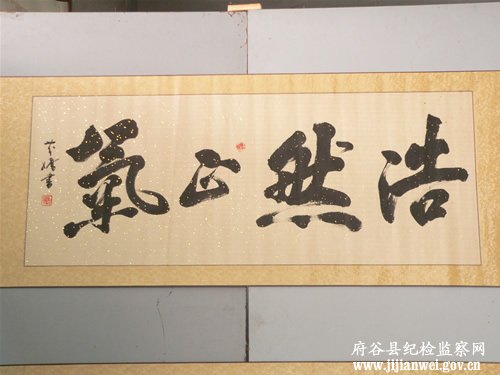 浩然正氣
府谷县纪检监察网
www.jijianwei.gov.cn